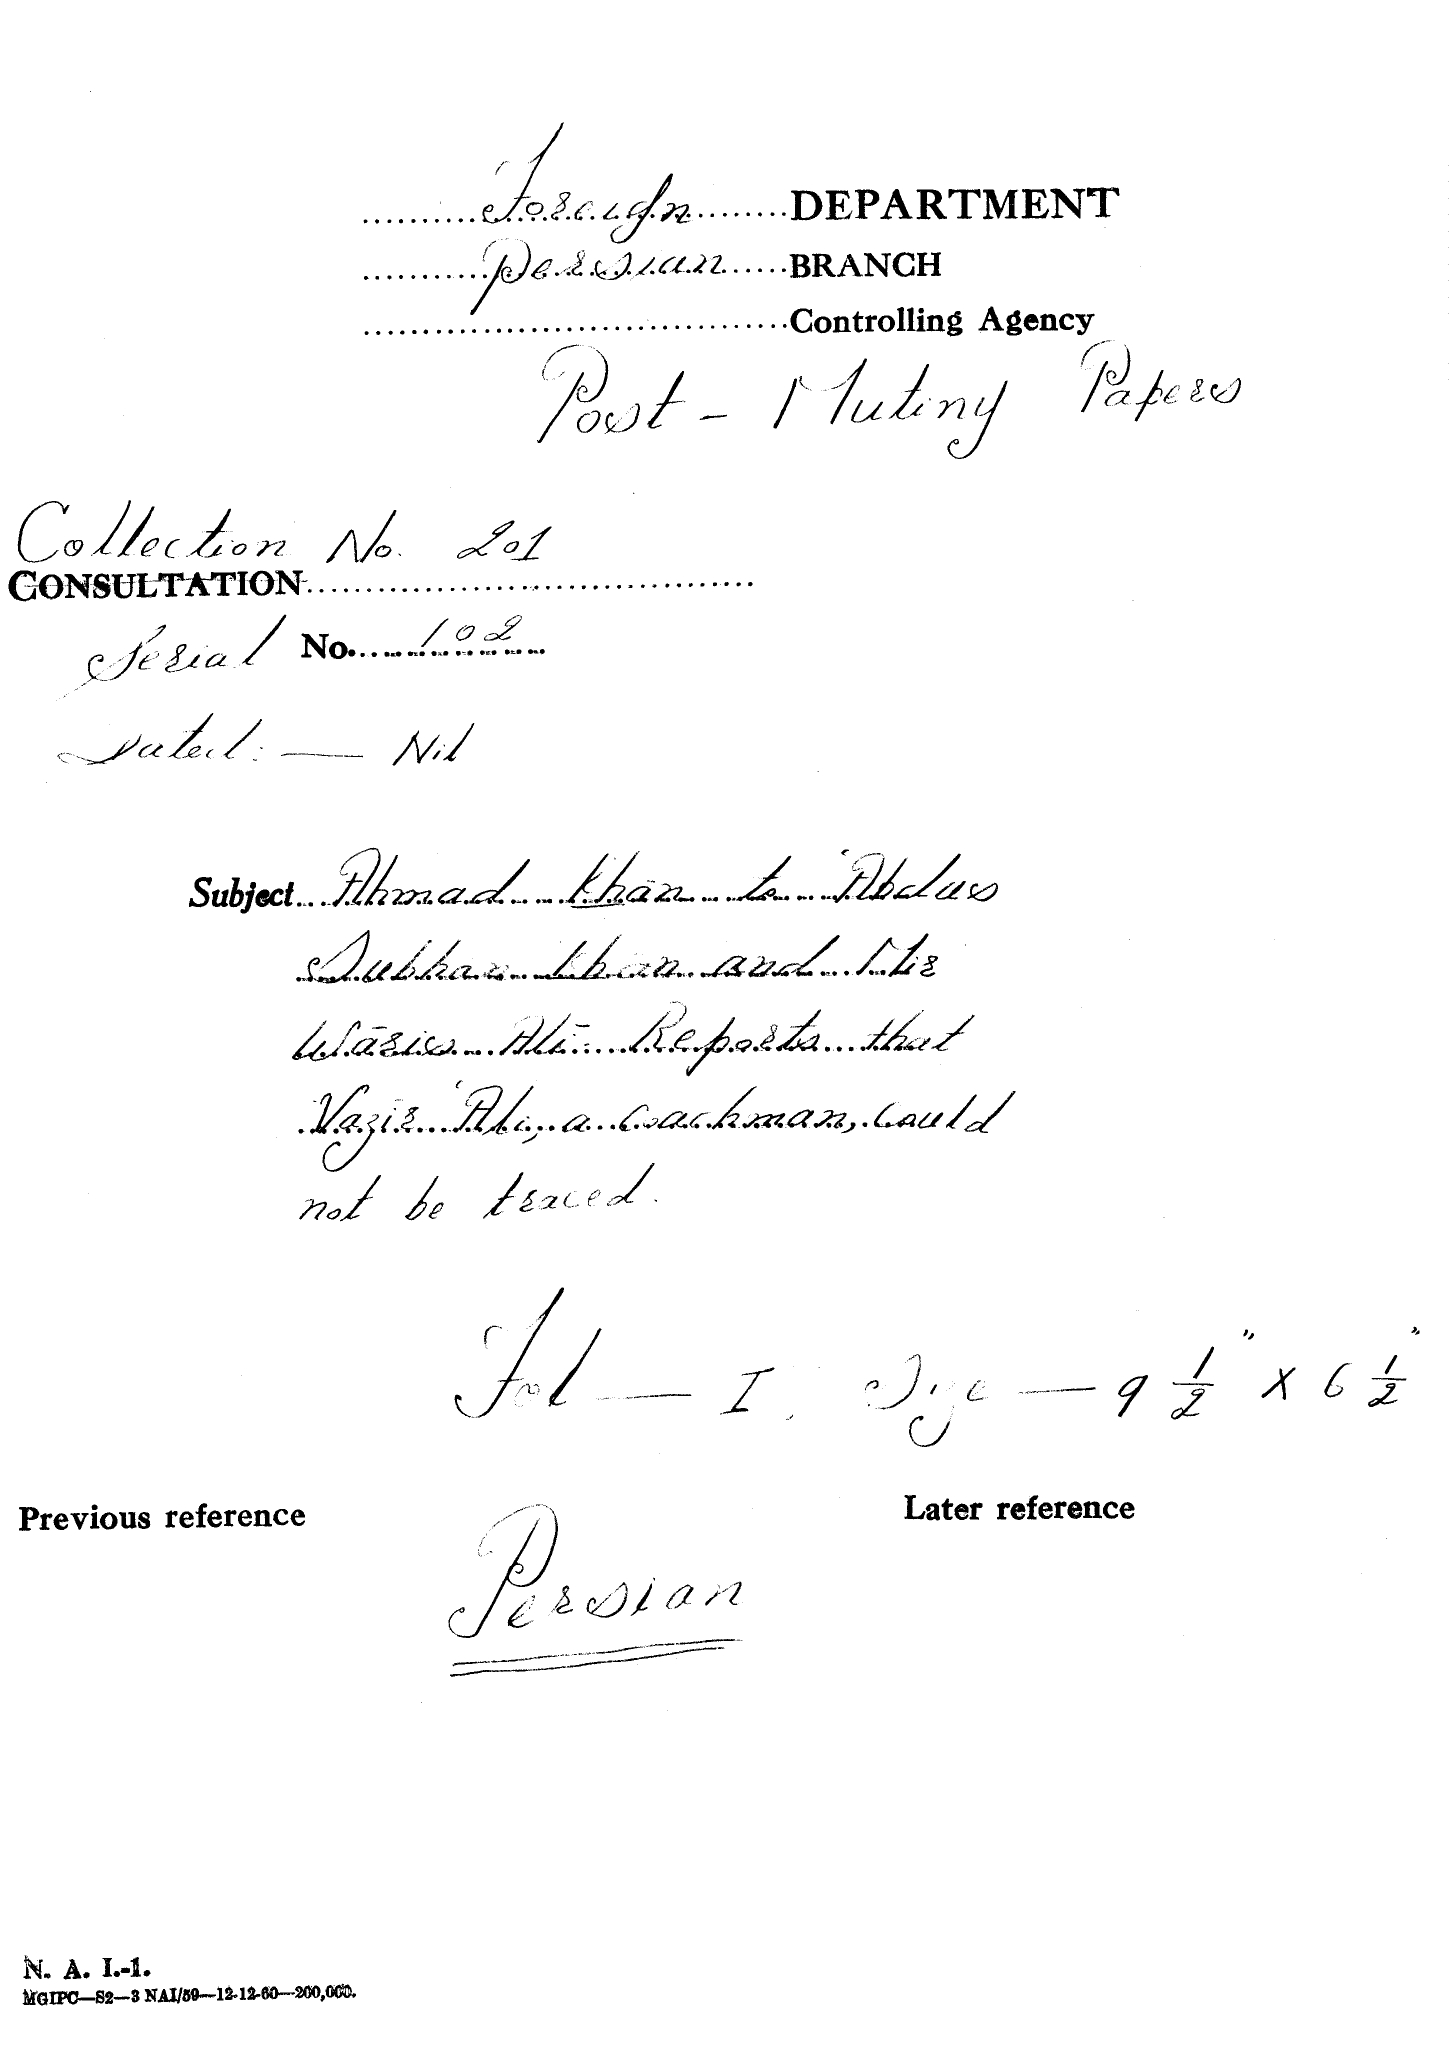 Foreign DEPARTMENT
Persian BRANCH
Controlling Agency
Post - Mutiny Papers
Collection No. 201
CONSULTATION
Serial No. 102
Dated: — Nil
Subject Ahmad Khān to 'Abdus
Subhan Khān and Mir
Wāris Alī. Reports that
Vazir 'Ali, a coachman, could
not be traced.
Fol — I. Size — 9 1/2" X 6 1/2"
Previous reference Later reference
Persian
N. A. I.-1.
MGIPC—S2—3 NAI/59—12-12-60—200,000.